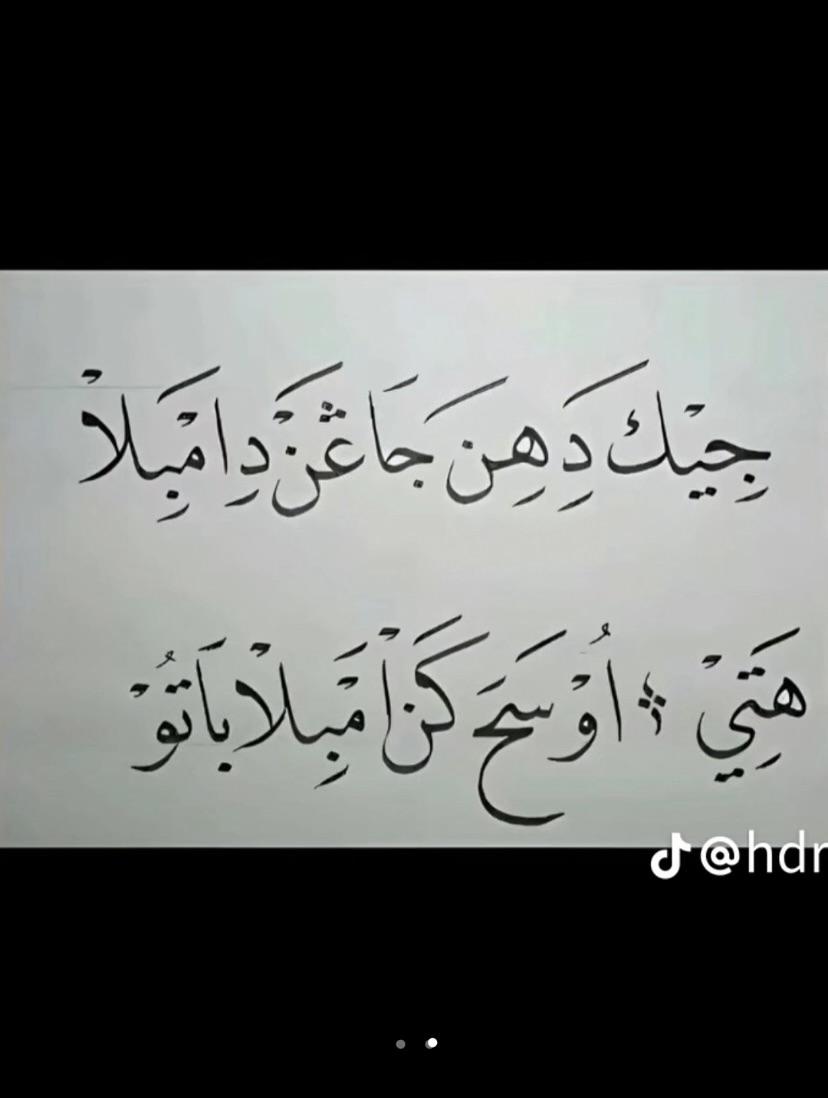 جِيْك دَِهِنَ جَاڠَنْ دِامْبِلاْ
هَتِيْ ؛ اُوْسَحَ كَنْ امْبِلاْ بَاتُوْ